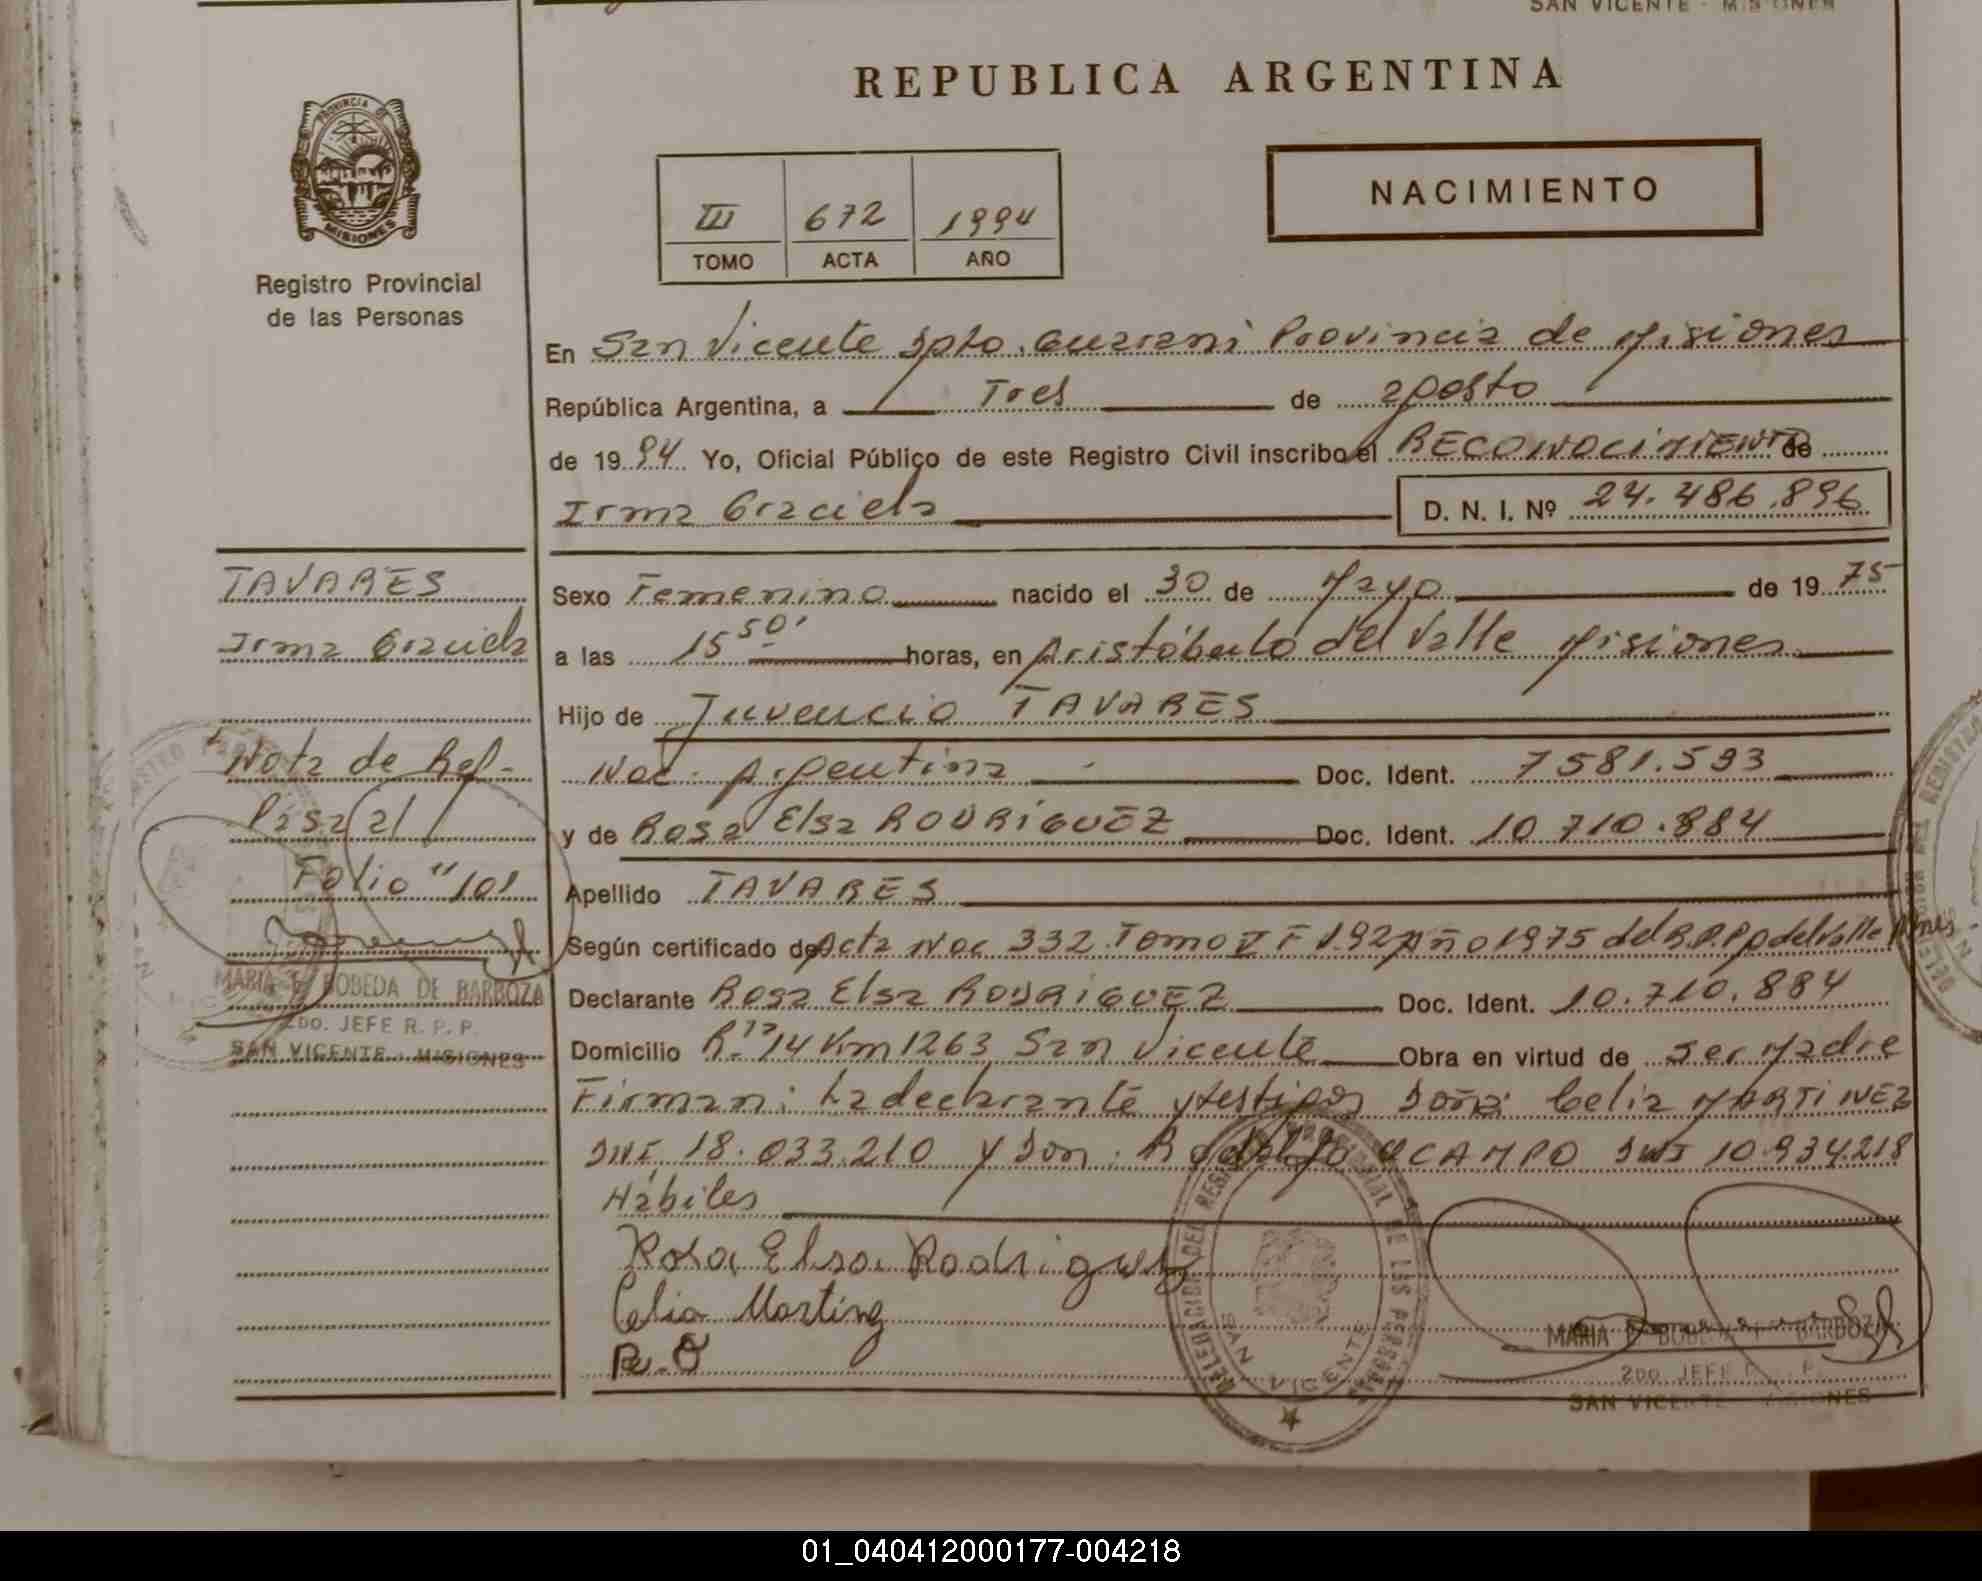 SAN VICENTE - MISIONES
REPUBLICA ARGENTINA
PROVINCIA DE
MISIONES
Registro Provincial
de las Personas
III 672 1994
TOMO ACTA AÑO
NACIMIENTO
En San Vicente Dpto. Guarani Provincia de Misiones
República Argentina, a Tres de agosto
de 1994 Yo, Oficial Público de este Registro Civil inscribo el RECONOCIMIENTO de
Irma Graciela D. N. I. Nº 24.486.896
TAVARES
Irma Graciela
Nota de Ref-
Pasa al
Folio "101
MARIA E. BOBEDA DE BARBOZA
2DO. JEFE R. P. P.
SAN VICENTE - MISIONES
Sexo Femenino nacido el 30 de Mayo de 1975
a las 15 50' horas, en Aristóbulo del Valle Misiones
Hijo de Juvencio TAVARES
Nac. Argentina Doc. Ident. 7581.593
y de Rosa Elsa RODRIGUEZ Doc. Ident. 10.710.884
Apellido TAVARES
Según certificado de Acta Nac 332 Tomo V F 192 Año 1975 del R.P.P del Valle Mnes
Declarante Rosa Elsa RODRIGUEZ Doc. Ident. 10.710.884
Domicilio R. 14 Km 1263 San Vicente Obra en virtud de ser Madre
Firman: La declarante y testigos Doña: Celia MARTINEZ
DNI 18.033.210 y Don: Rodolfo OCAMPO DNI 10.934.218
Hábiles
Rosa Elsa Rodriguez
Celia Martinez
DELEGACION DEL REGISTRO PROVINCIAL DE LAS PERSONAS
SAN VICENTE
MARIA E. BOBEDA DE BARBOZA
2DO. JEFE R. P. P.
SAN VICENTE - MISIONES
01_040412000177-004218